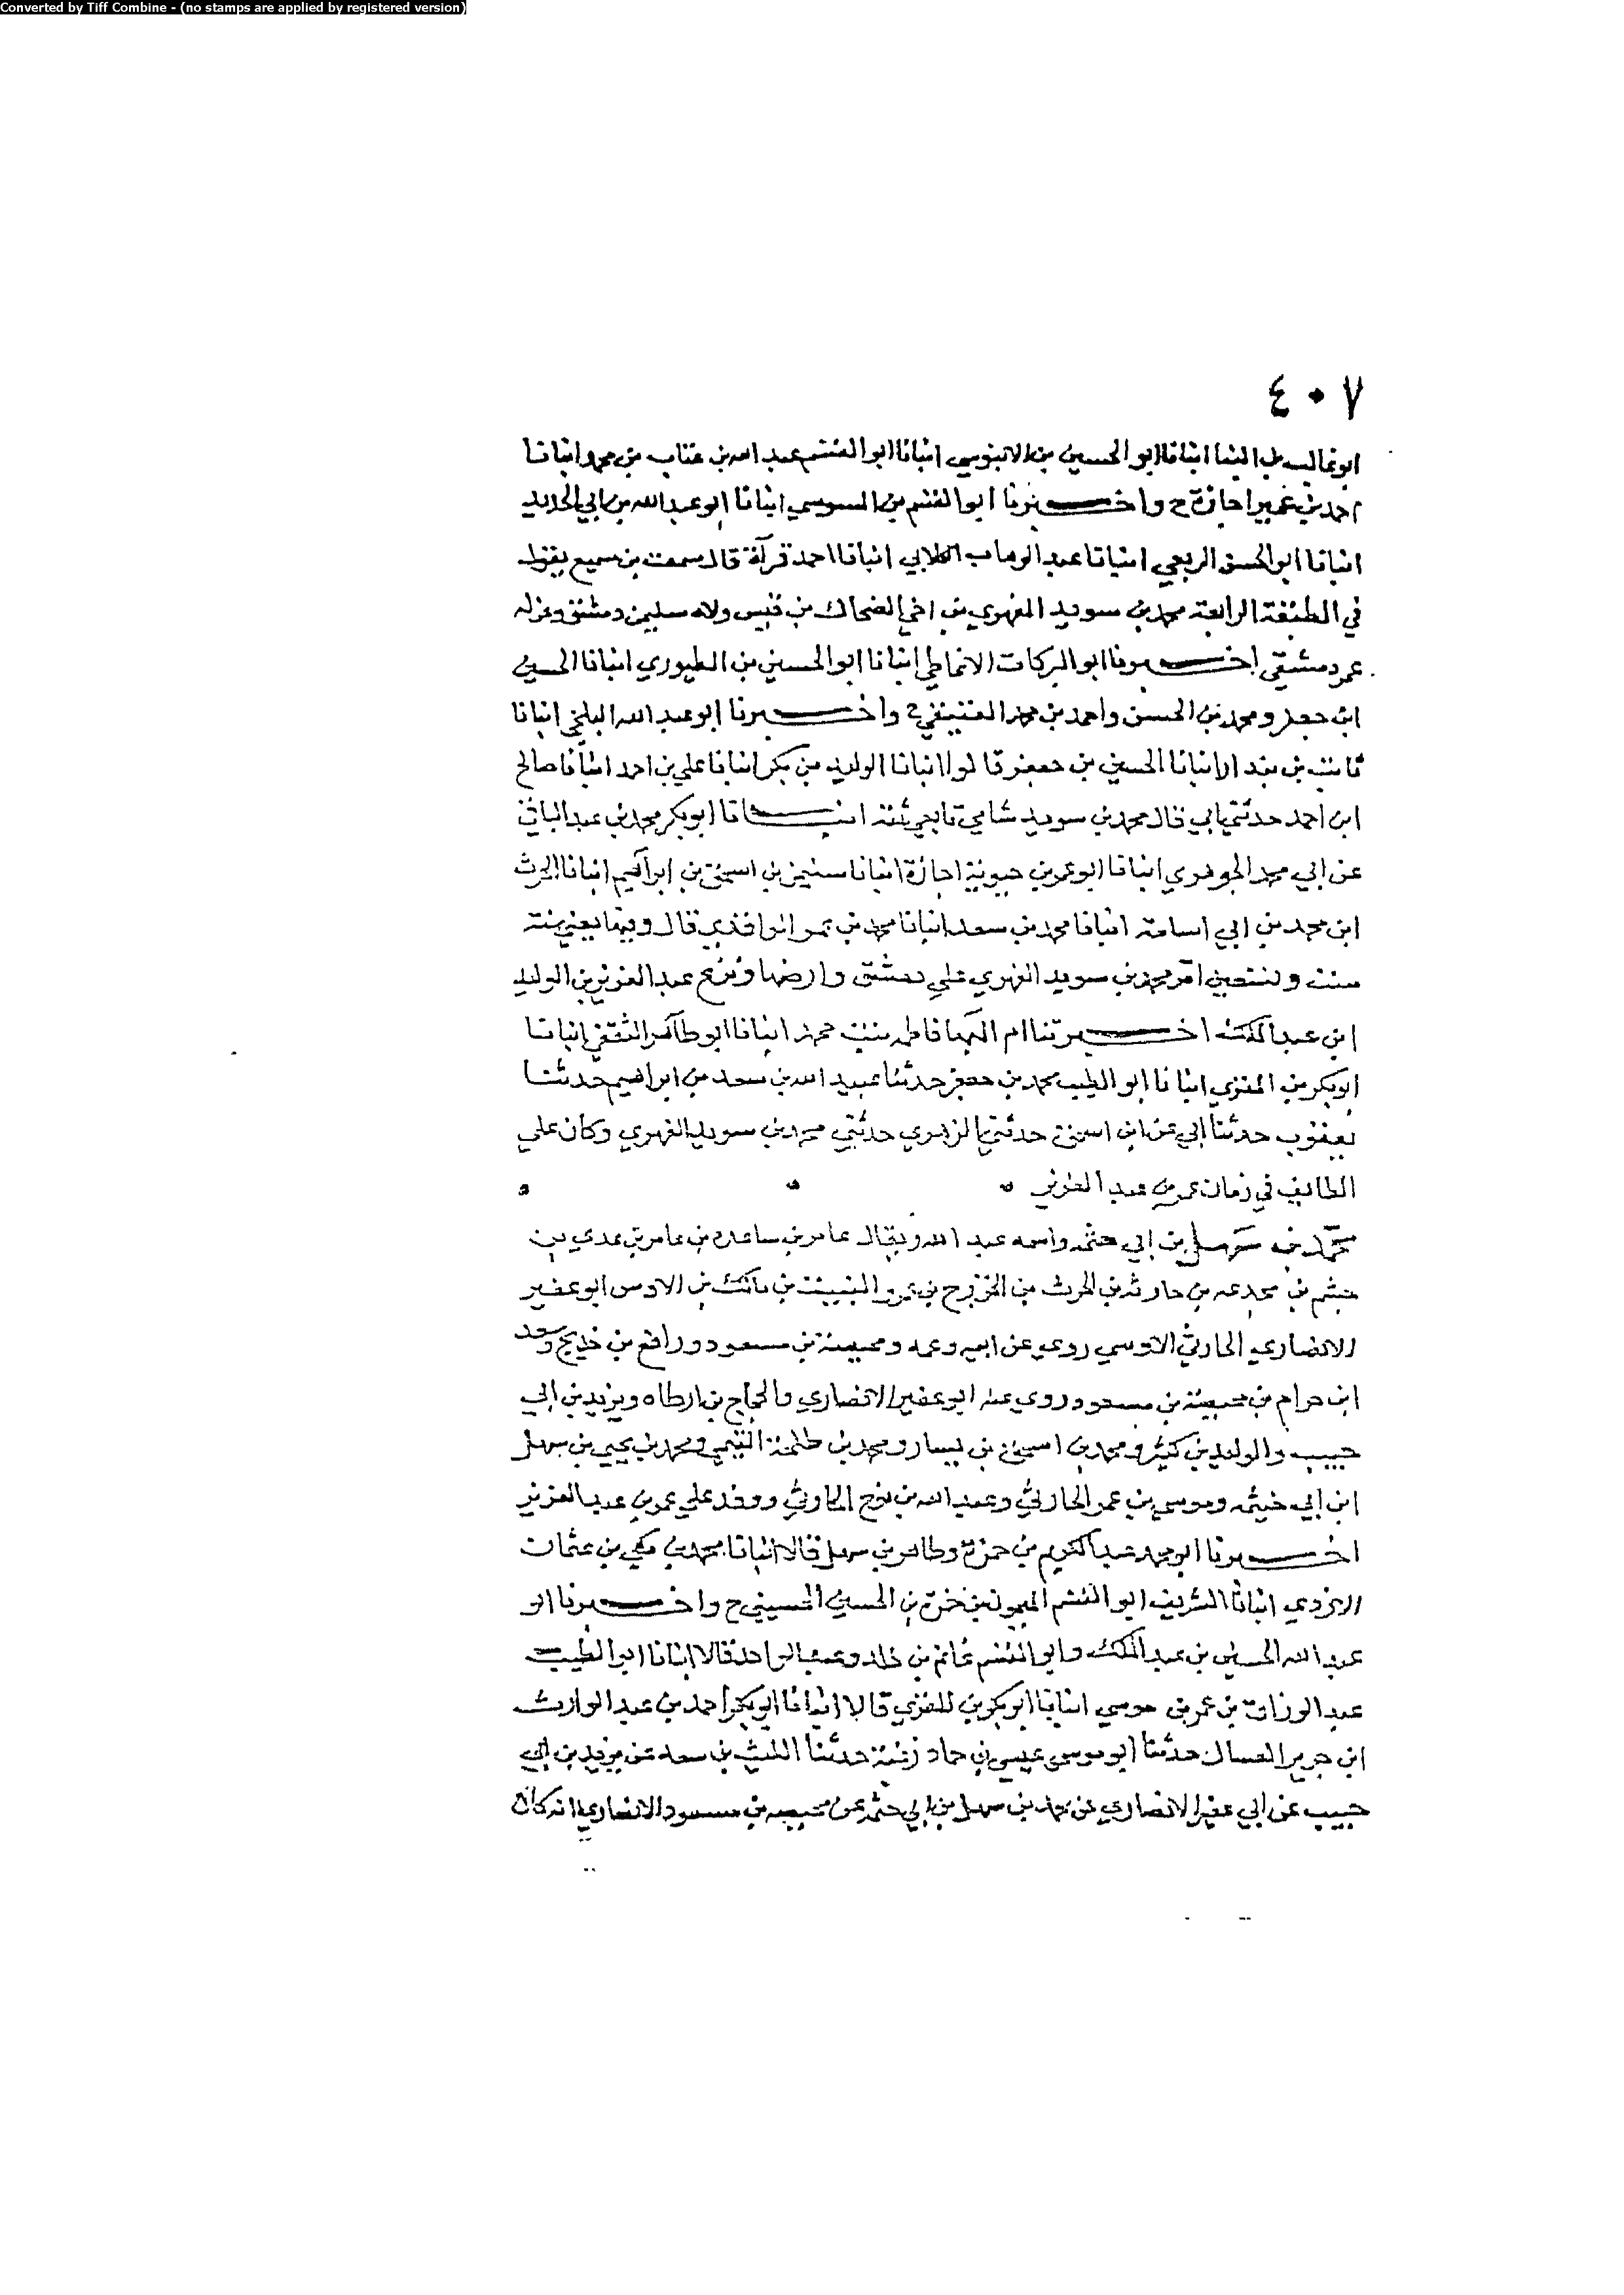 Converted by Tiff Combine - (no stamps are applied by registered version)
٤٠٧
ابو غالب بن البنا انبانا ابو الحسين بن الابنوسي انبانا ابو القسم عبد الله بن عتاب بن محمد انبانا
احمد بن عمير اجازة ح واخبرنا ابو القسم بن السوسي انبانا ابو عبد الله بن ابي الحديد
انبانا ابو الحسن الربعي انبانا عبد الوهاب الكلابي انبانا احمد قرآة قال سمعت بن سميع يقول
في الطبقة الرابعة محمد بن سويد الفهري بن اخي الضحاك بن قيس ولاه سليمن دمشق وعزله
عمر دمشقي اخبرنا ابو البركات الانماطي انبانا ابو الحسين بن الطيوري انبانا الحسين
ابن جعفر ومحمد بن الحسن واحمد بن محمد العتيقي ح واخبرنا ابو عبد الله البلخي انبانا
ثابت بن بندار انبانا الحسين بن جعفر قالوا انبانا الوليد بن بكر انبانا علي بن احمد انبانا صالح
ابن احمد حدثني ابي قال محمد بن سويد شامي تابعي ثقة انبانا ابو بكر محمد بن عبد الباقي
عن ابي محمد الجوهري انبانا ابو عمر بن حيوية اجازة انبانا سليمن بن اسحق بن ابراهيم انبانا الحرث
ابن محمد بن ابي اسامة انبانا محمد بن سعد انبانا محمد بن عمر الواقدي قال وفيها يعني سنة
ست وتسعين امر محمد بن سويد الفهري علي دمشق وارضها ونزع عبد العزيز بن الوليد
ابن عبد الملك اخبرتنا ام البها فاطمه بنت محمد انبانا ابو طاهر الثقفي انبانا
ابو بكر بن المقري انبانا ابو الطيب محمد بن جعفر حدثنا عبيد الله بن سعد بن ابراهيم حدثنا
يعقوب حدثنا ابي عن ابن اسحق حدثني الزهري حدثني محمد بن سويد الفهري وكان علي
الطائف في زمان عمر بن عبد العزيز ه ه ه
محمد بن سهل بن ابي حثمه واسمه عبد الله ويقال عامر بن ساعده بن عامر بن عدي بن
جشم بن مجدعه بن حارثه بن الحرث بن الخزرج بن عمرو النبيت بن مالك بن الاوس ابو عفير
الانصاري الحارثي الاوسي روى عن ابيه وعمه ومحيصة بن مسعود ورافع بن خديج وسعد
ابن حرام بن محيصة بن مسعود روى عنه ابو عفير الانصاري والحجاج بن ارطاه ويزيد بن ابي
حبيب والوليد بن كثير ومحمد بن اسحق بن يسار ومحمد بن طلحة التيمي ومحمد بن يحيى بن سهل
ابن ابي خيثمه وموسي بن عمر الحارثي وعبد الله بن نوح الحارثي ووفد علي عمر بن عبد العزيز
اخبرنا ابو محمد عبد الكريم بن حمزة وطاهر بن سهل قالا انبانا محمد بن مكي بن عثمان
الازدي انبانا الشريف ابو القسم الميمون بن حمزة بن الحسين الحسيني ح واخبرنا ابو
عبد الله الحسين بن عبد الملك وابو القسم غانم بن خلد وعبد الواحد قالا انبانا ابو الطيب
عبد الرزاق بن عمر بن موسي انبانا ابو بكر بن المقري قالا انبانا ابو بكر احمد بن عبد الوارث
ابن جرير العسال حدثنا ابو موسي عيسي بن حماد زغبة حدثنا الليث بن سعد عن يزيد بن ابي
حبيب عن ابي عفير الانصاري عن محمد بن سهل بن ابي حثمه عن محيصه بن مسعود الانصاري انه كان